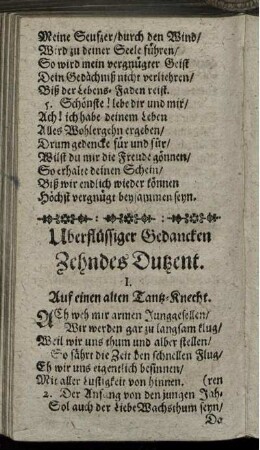 Meine Seufzer/durch den Wind/
Wird zu deiner Seele führen/
So wird mein vergnügter Geist
Dein Gedächtniß nicht verliehren/
Biß der Lebens-Faden reist.
5. Schönste! lebe dir und mir/
Ach! ich habe deinem Leben
Alles Wohlergehn ergeben/
Drum gedencke für und für/
Wilst du mir die Freude gönnen/
So erhalte deinen Schein/
Biß wir endlich wieder können
Höchst vergnügt beysammen seyn.
Uberflüssiger Gedancken
Zehndes Dutzent.
I.
Auf einen alten Tantz-Knecht.
ACh weh mir armen Junggesellen/
Wir werden gar zu langsam klug/
Weil wir uns thum und alber stellen/
So fährt die Zeit den schnellen Flug/
Eh wir uns eigentlich besinnen/
Mit aller Lustigkeit von hinnen. (ren
2. Der Anfang von den jungen Jah-
Sol auch der Liebe Wachsthum seyn/
Do